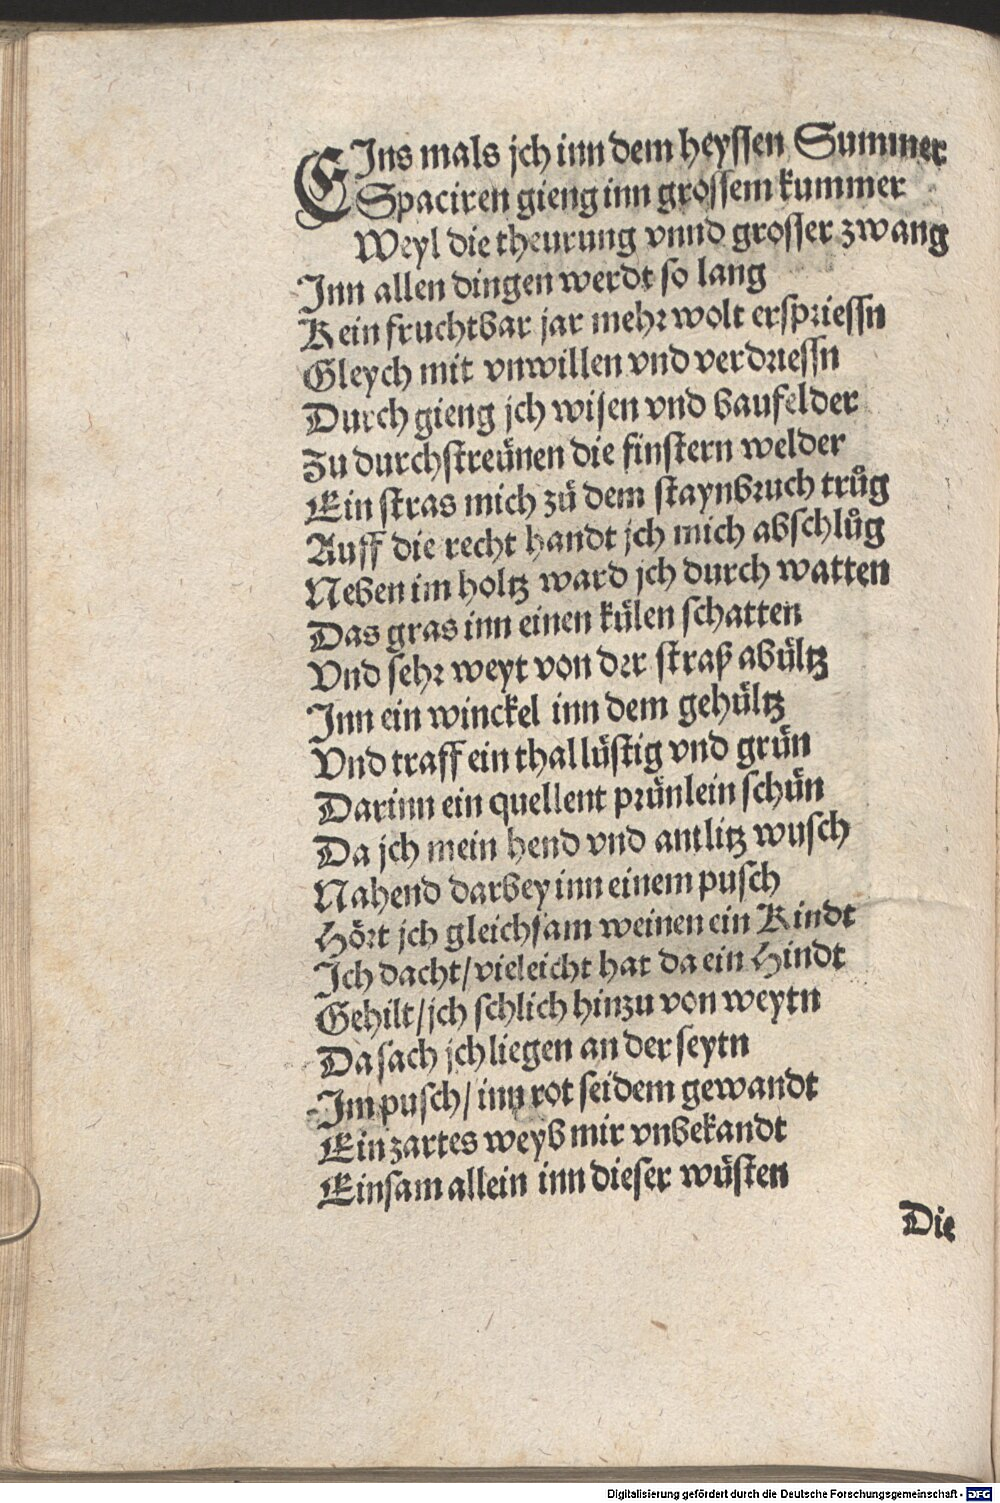 EIns mals jch inn dem heyssen Summer
Spaciren gieng inn grossem kummer
Weyl die theurung vnnd grosser zwang
Inn allen dingen werdt so lang
Kein fruchtbar jar mehr wolt erspriessn
Gleych mit vnwillen vnd verdriessn
Durch gieng jch wisen vnd baufelder
Zu durchstreünen die finstern welder
Ein stras mich zů dem staynbruch trůg
Auff die recht handt jch mich abschlůg
Neben im holtz ward jch durch watten
Das gras inn einen külen schatten
Vnd sehr weyt von der straß abültz
Inn ein winckel inn dem gehültz
Vnd traff ein thal lüstig vnd grün
Darinn ein quellent prünlein schün
Da jch mein hend vnd antlitz wusch
Nahend darbey inn einem pusch
Hört jch gleichsam weinen ein Kindt
Ich dacht/vieleicht hat da ein Hindt
Gehilt/jch schlich hinzu von weytn
Da sach jch liegen an der seytn
Im pusch/inn rot seidem gewandt
Ein zartes weyb mir vnbekandt
Einsam allein inn dieser wüsten
Die
Digitalisierung gefördert durch die Deutsche Forschungsgemeinschaft - DFG